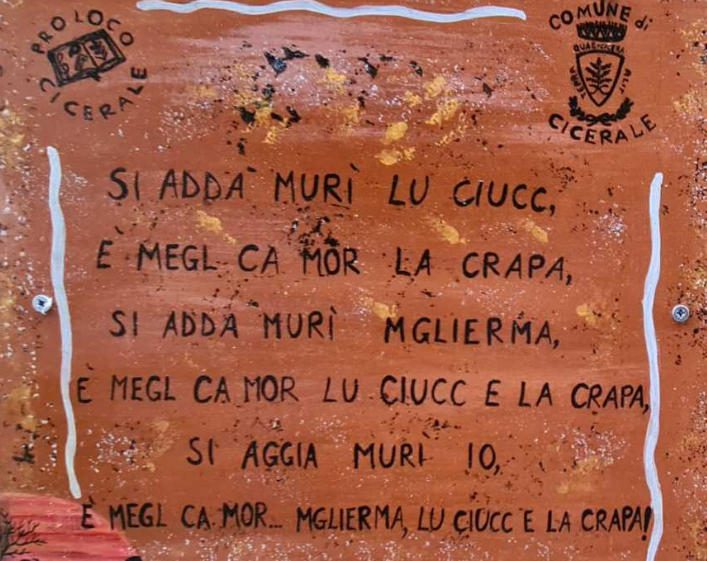 PRO LOCO
CICERALE
COMUNE di
CICERALE
SI ADDA MURÌ LU CIUCC,
È MEGL CA MOR LA CRAPA,
SI ADDA MURÌ MGLIERMA,
È MEGL CA MOR LU CIUCC E LA CRAPA,
SI AGGIA MURÌ IO,
È MEGL CA MOR... MGLIERMA, LU CIUCC E LA CRAPA!